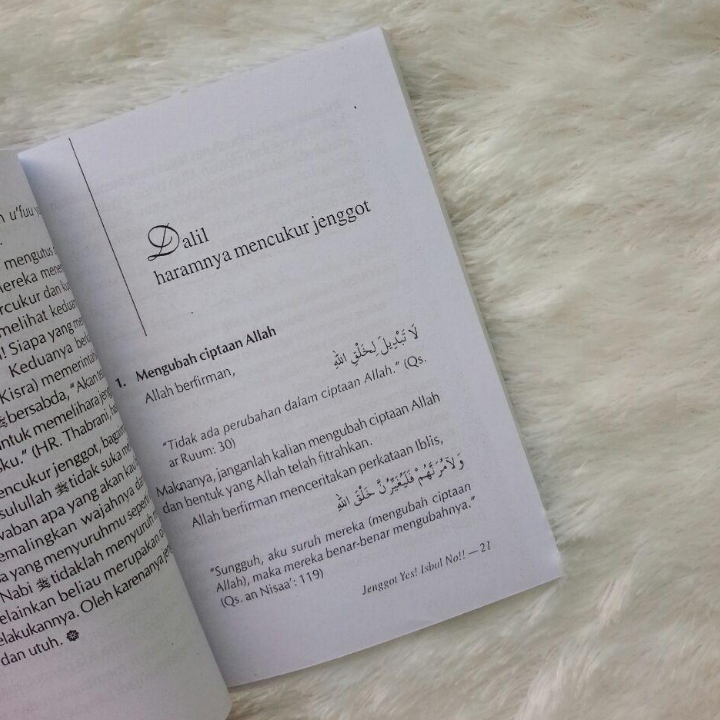 u'fuu
mengutus
mereka
cukur dan
melihat
Siapa yang
Keduanya
Kisra)
bersabda, "Akan
untuk memelihara
ku." (HR. Thabrani,
mencukur jenggot,
ﷺ tidak suka
waban apa yang akan
emalingkan wajahnya
yang menyuruhmu
Nabi ﷺ tidaklah
elainkan beliau merupakan
elakukannya. Oleh karenanya
dan utuh.
Dalil
haramnya mencukur jenggot
1. Mengubah ciptaan Allah
Allah berfirman,
لَا تَبْدِيلَ لِخَلْقِ اللَّهِ
"Tidak ada perubahan dalam ciptaan Allah." (Qs.
ar Ruum: 30)
Maknanya, janganlah kalian mengubah ciptaan Allah
dan bentuk yang Allah telah fitrahkan.
Allah berfirman menceritakan perkataan Iblis,
وَلَآمُرَنَّهُمْ فَلَيُغَيِّرُنَّ خَلْقَ اللَّهِ
"Sungguh, aku suruh mereka (mengubah ciptaan
Allah), maka mereka benar-benar mengubahnya."
(Qs. an Nisaa': 119)
Jenggot Yes! Isbal No!! — 21